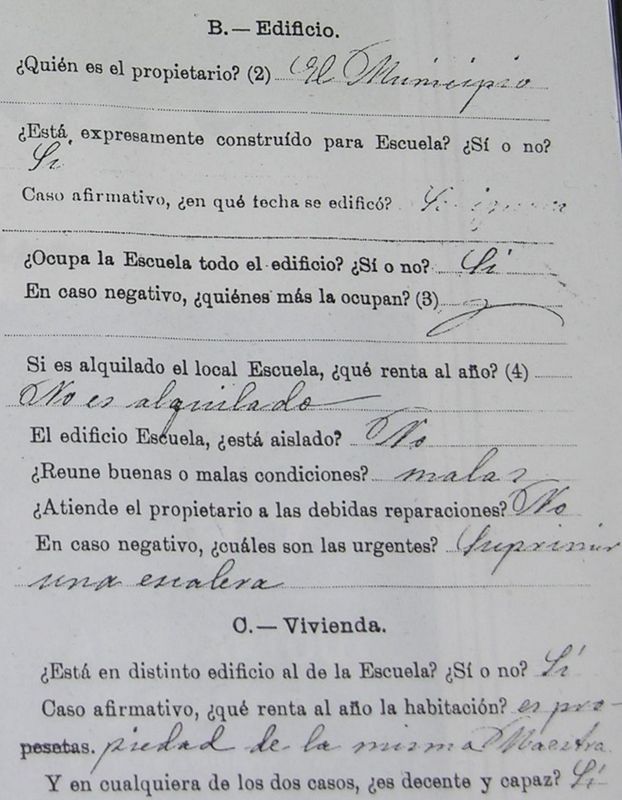 B. — Edificio.
¿Quién es el propietario? (2) El Municipio
¿Está expresamente construído para Escuela? ¿Sí o no?
Sí
Caso afirmativo, ¿en qué fecha se edificó? Se ignora
¿Ocupa la Escuela todo el edificio? ¿Sí o no? Sí
En caso negativo, ¿quiénes más la ocupan? (3)
Si es alquilado el local Escuela, ¿qué renta al año? (4)
No es alquilado
El edificio Escuela, ¿está aislado? No
¿Reune buenas o malas condiciones? malas
¿Atiende el propietario a las debidas reparaciones? No
En caso negativo, ¿cuáles son las urgentes? Suprimir
una escalera
C. — Vivienda.
¿Está en distinto edificio al de la Escuela? ¿Sí o no? Sí
Caso afirmativo, ¿qué renta al año la habitación? es pro-
pesetas. piedad de la misma Maestra
Y en cualquiera de los dos casos, ¿es decente y capaz? Sí